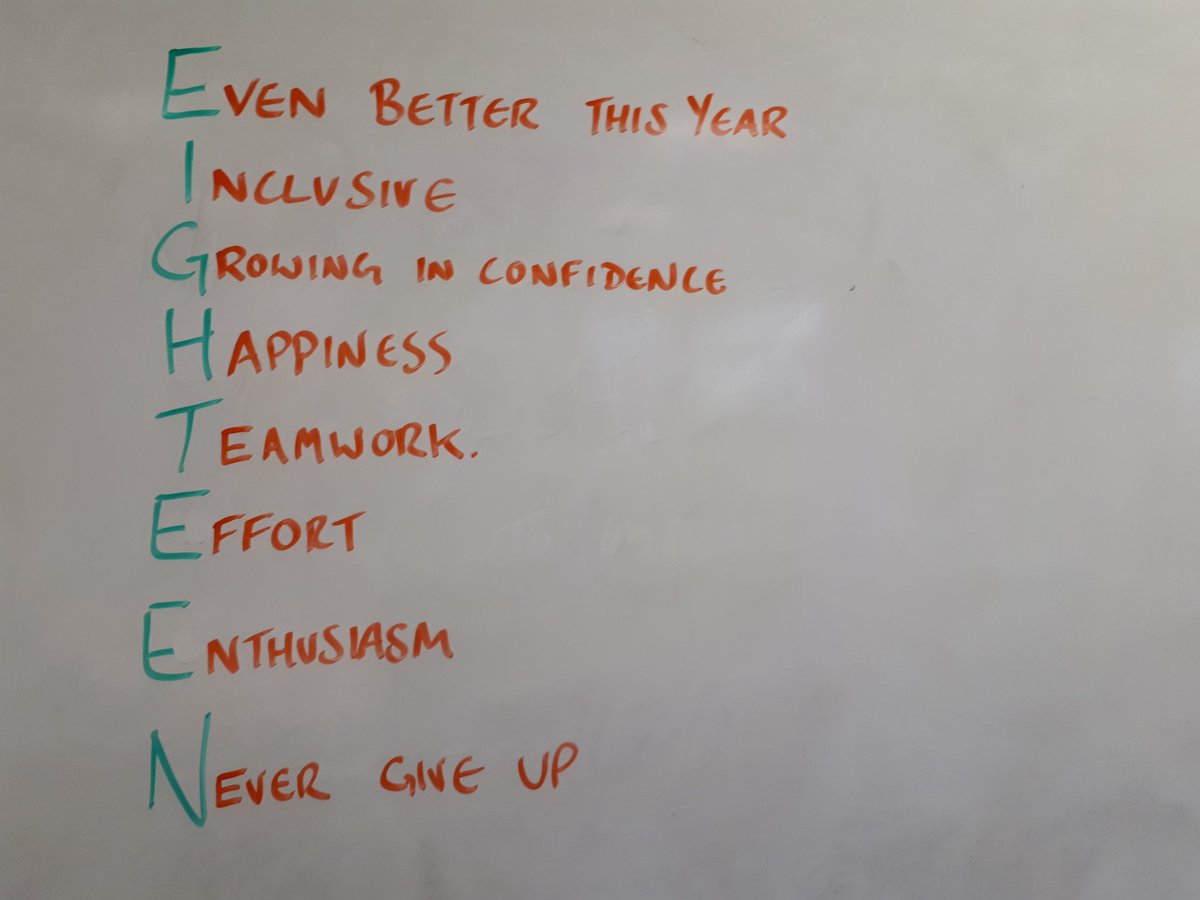 EVEN BETTER THIS YEAR
INCLUSIVE
GROWING IN CONFIDENCE
HAPPINESS
TEAMWORK.
EFFORT
ENTHUSIASM
NEVER GIVE UP